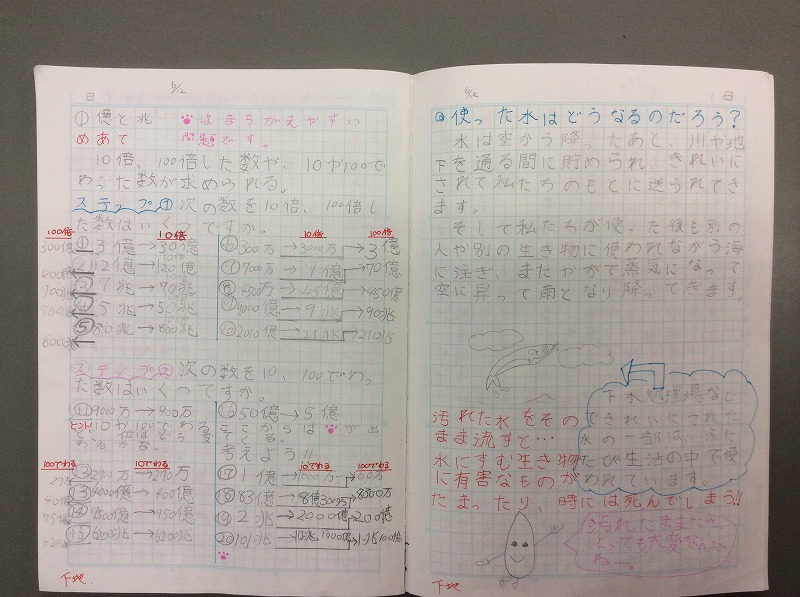 6/12
日
①億と兆 はまちがえやすい
めあて 問題です。
10倍、100倍した数や、10や100で
わった数が求められる。
ステップ① 次の数を10倍、100倍し
た数はいくつですか。
100倍 10倍
①3億→30億
300億
②12億→120億
1200億
③7兆→70兆
700兆
④5兆→50兆
500兆
⑤80兆→800兆
8000兆
10倍 100倍
⑥300万→3000万→3億
⑦700万→70億
⑧450万→450億
⑨4000億→90兆
⑩2010億→210兆
ステップ② 次の数を10、100でわっ
た数はいくつですか。
⑪900万→900万
ヒント 10か100でわる
⑯50億→5億
ここからは が出
てくる。
考えよう!!
100でわる 10でわる
⑫2700万→270万
27万
⑬4000億→400億
40億
⑭9500億→950億
95億
⑮6200兆→620兆
10でわる 100でわる
⑰1億→1000万→100万
⑱83億→8億3000万→8300万
⑲2兆→2000億→200億
⑳101兆→10兆1000億→1兆100億
下地
6/12
日
使った水はどうなるのだろう?
水は空から降ったあと、川や地
下を通る間に貯められ、きれいに
されて私たちのもとに送られてき
ます。
そして私たちが使った後も別の
人や別の生き物に使われながら海
に注ぎ、またやがて蒸気になって
空に昇って雨となり降ってきます。
下水処理場など
できれいにされた
水の一部は、ふた
たび生活の中で使
われています。
汚れた水をその
まま流すと…
水にすむ生き物
に有害なものが
たまったり、時には死んでしまう!!
汚れたままだと
とっても大変なんだ
ねー。
下地